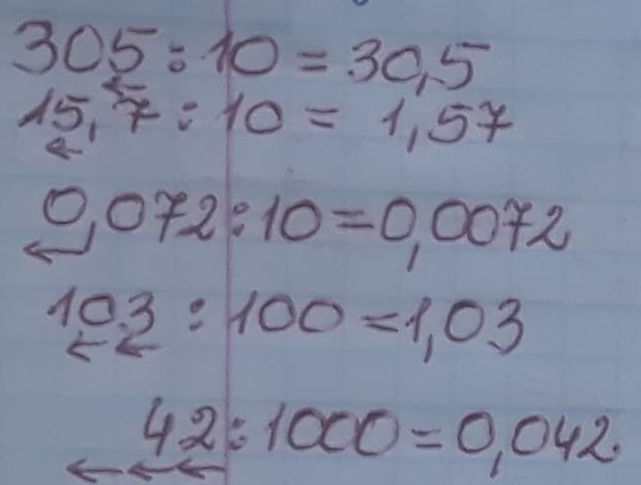 305 : 10 = 30,5
15,7 : 10 = 1,57
0,072 : 10 = 0,0072
103 : 100 = 1,03
42 : 1000 = 0,042